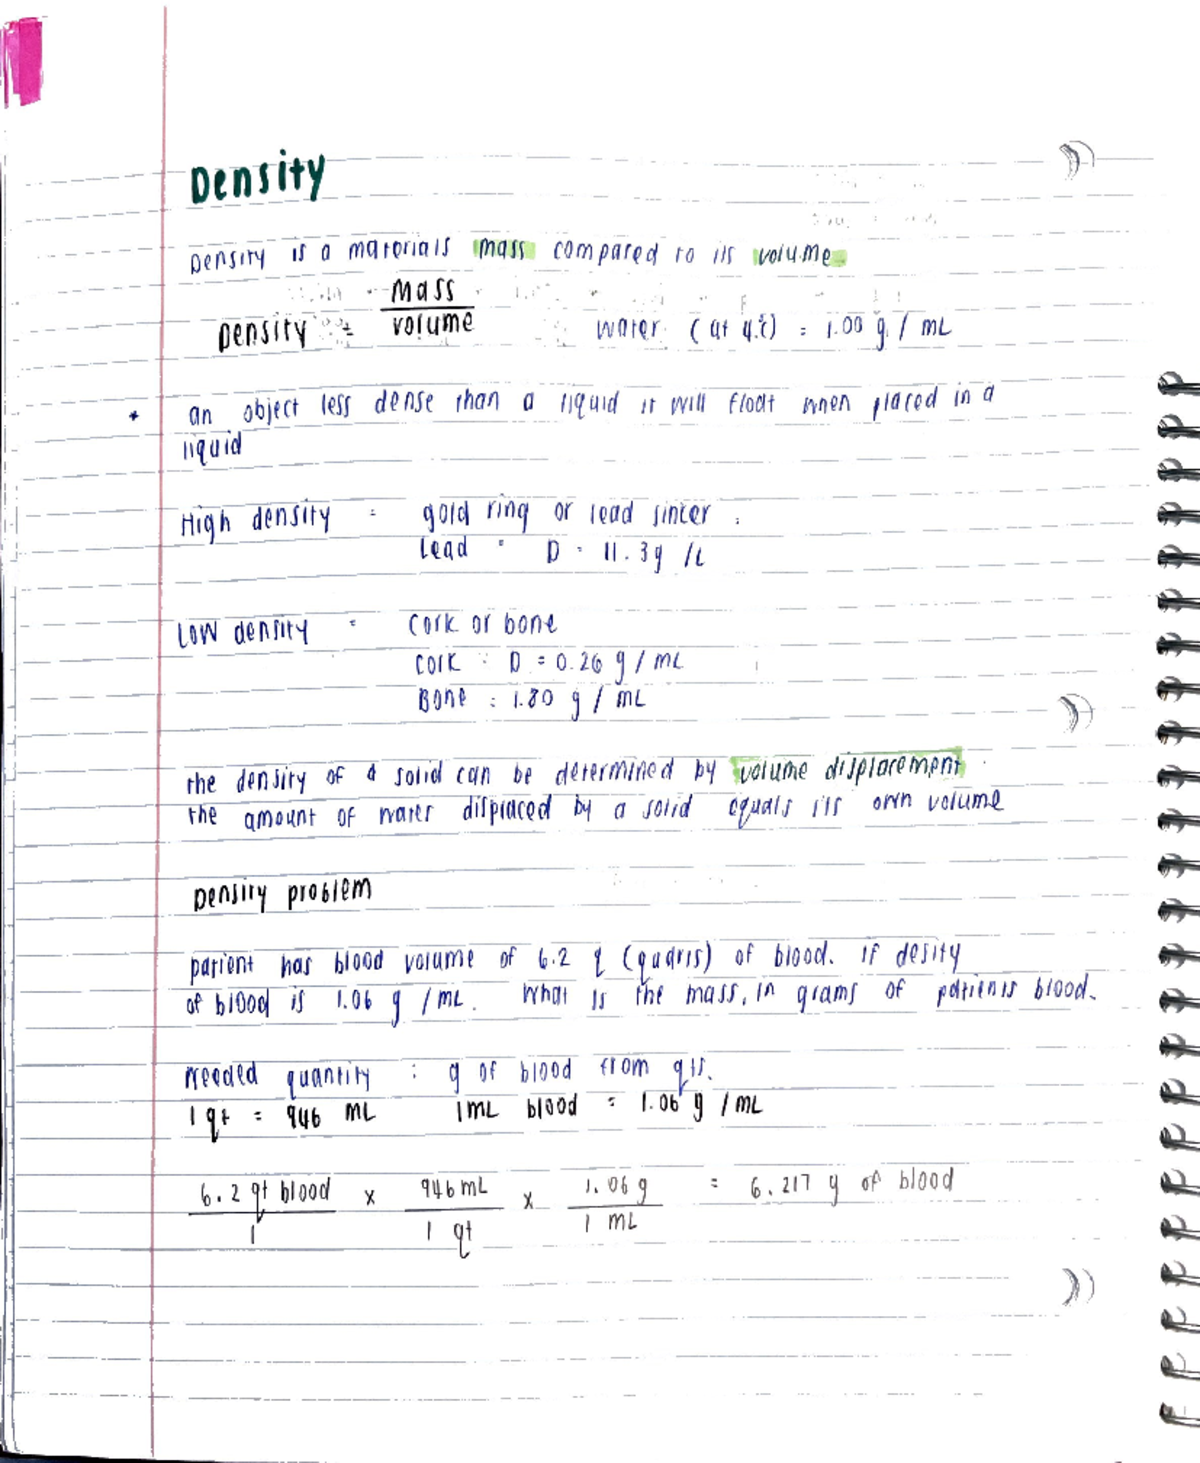 Density
Density is a materials mass compared to its volume.
Density = Mass / volume     water (at 4°c) = 1.00 g / mL
* an object less dense than a liquid it will float when placed in a
liquid
High density = gold ring or lead sinker.
Lead = D = 11.3g /L
Low density = cork or bone
cork : D = 0.26 g / mL
Bone : 1.80 g / mL
the density of a solid can be determined by volume displacement.
the amount of water displaced by a solid equals its own volume
Density problem
patient has blood volume of 6.2 q (quarts) of blood. if desity
of blood is 1.06 g / mL. What is the mass, in grams of patients blood.
Needed quantity : g of blood from qts.
1 qt = 946 mL     1mL blood = 1.06 g / mL
6.2 qt blood / 1 x 946 mL / 1 qt x 1.06 g / 1 mL = 6.217 g of blood